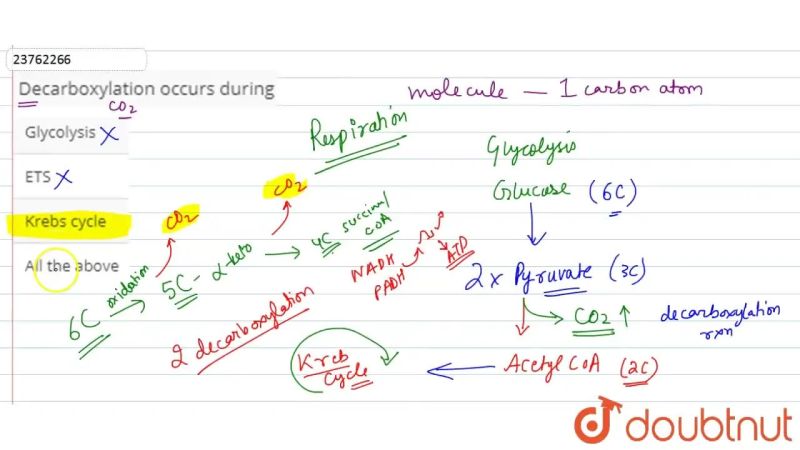 23762266
Decarboxylation occurs during
CO2
Glycolysis X
ETS X
Krebs cycle
All the above
molecule — 1 carbon atom
Respiration
Glycolysis
Glucose (6C)
2 x Pyruvate (3C)
CO2 ↑ decarboxylation rxn
Acetyl CoA (2C)
Kreb
cycle
6C oxidation → 5C - α-keto → 4C succinyl
COA
CO2
CO2
2 decarboxylation
NADH
FADH
ATP
doubtnut